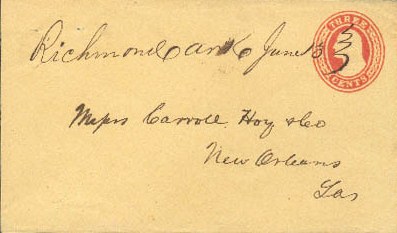 Richmond Ark June 13
THREE
CENTS
Messrs Carroll Hoy & Co
New Orleans
Las